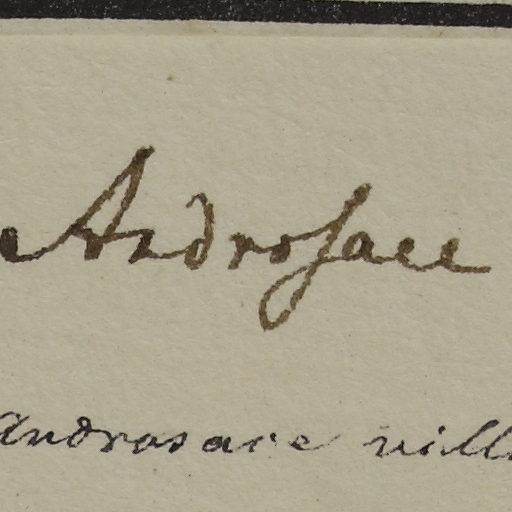 Androsace
Androsace vill